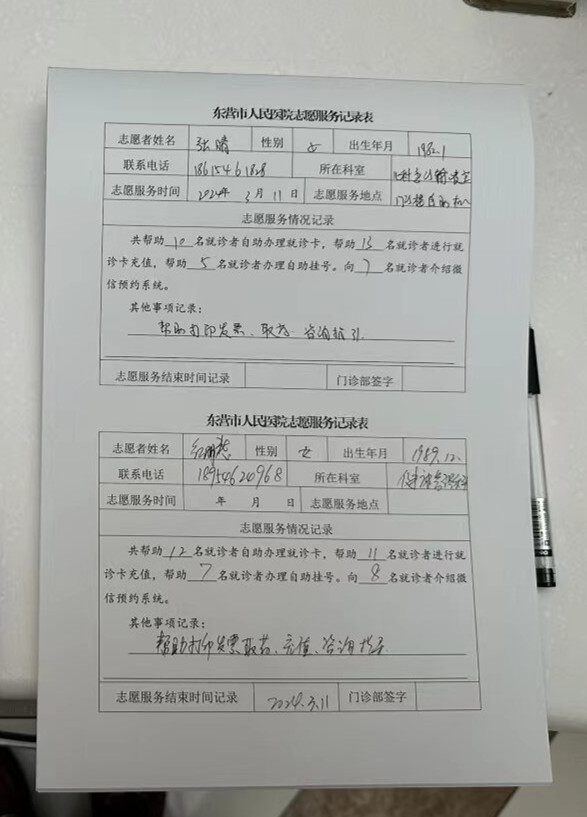 东营市人民医院志愿服务记录表
志愿者姓名 张晴 性别 女 出生年月 1982.1
联系电话 18615461828 所在科室
志愿服务时间 2024年 3月11日 志愿服务地点
志愿服务情况记录
共帮助10名就诊者自助办理就诊卡，帮助15名就诊者进行就
诊卡充值，帮助5名就诊者办理自助挂号。向7名就诊者介绍微
信预约系统。
其他事项记录：
帮助打印发票、取药、咨询指引
志愿服务结束时间记录 门诊部签字
东营市人民医院志愿服务记录表
志愿者姓名 性别 女 出生年月 1989.12.
联系电话 18954620968 所在科室
志愿服务时间 年 月 日 志愿服务地点
志愿服务情况记录
共帮助12名就诊者自助办理就诊卡，帮助11名就诊者进行就
诊卡充值，帮助7名就诊者办理自助挂号。向8名就诊者介绍微
信预约系统。
其他事项记录：
帮助打印发票取药、充值、咨询指导
志愿服务结束时间记录 2024.3.11 门诊部签字